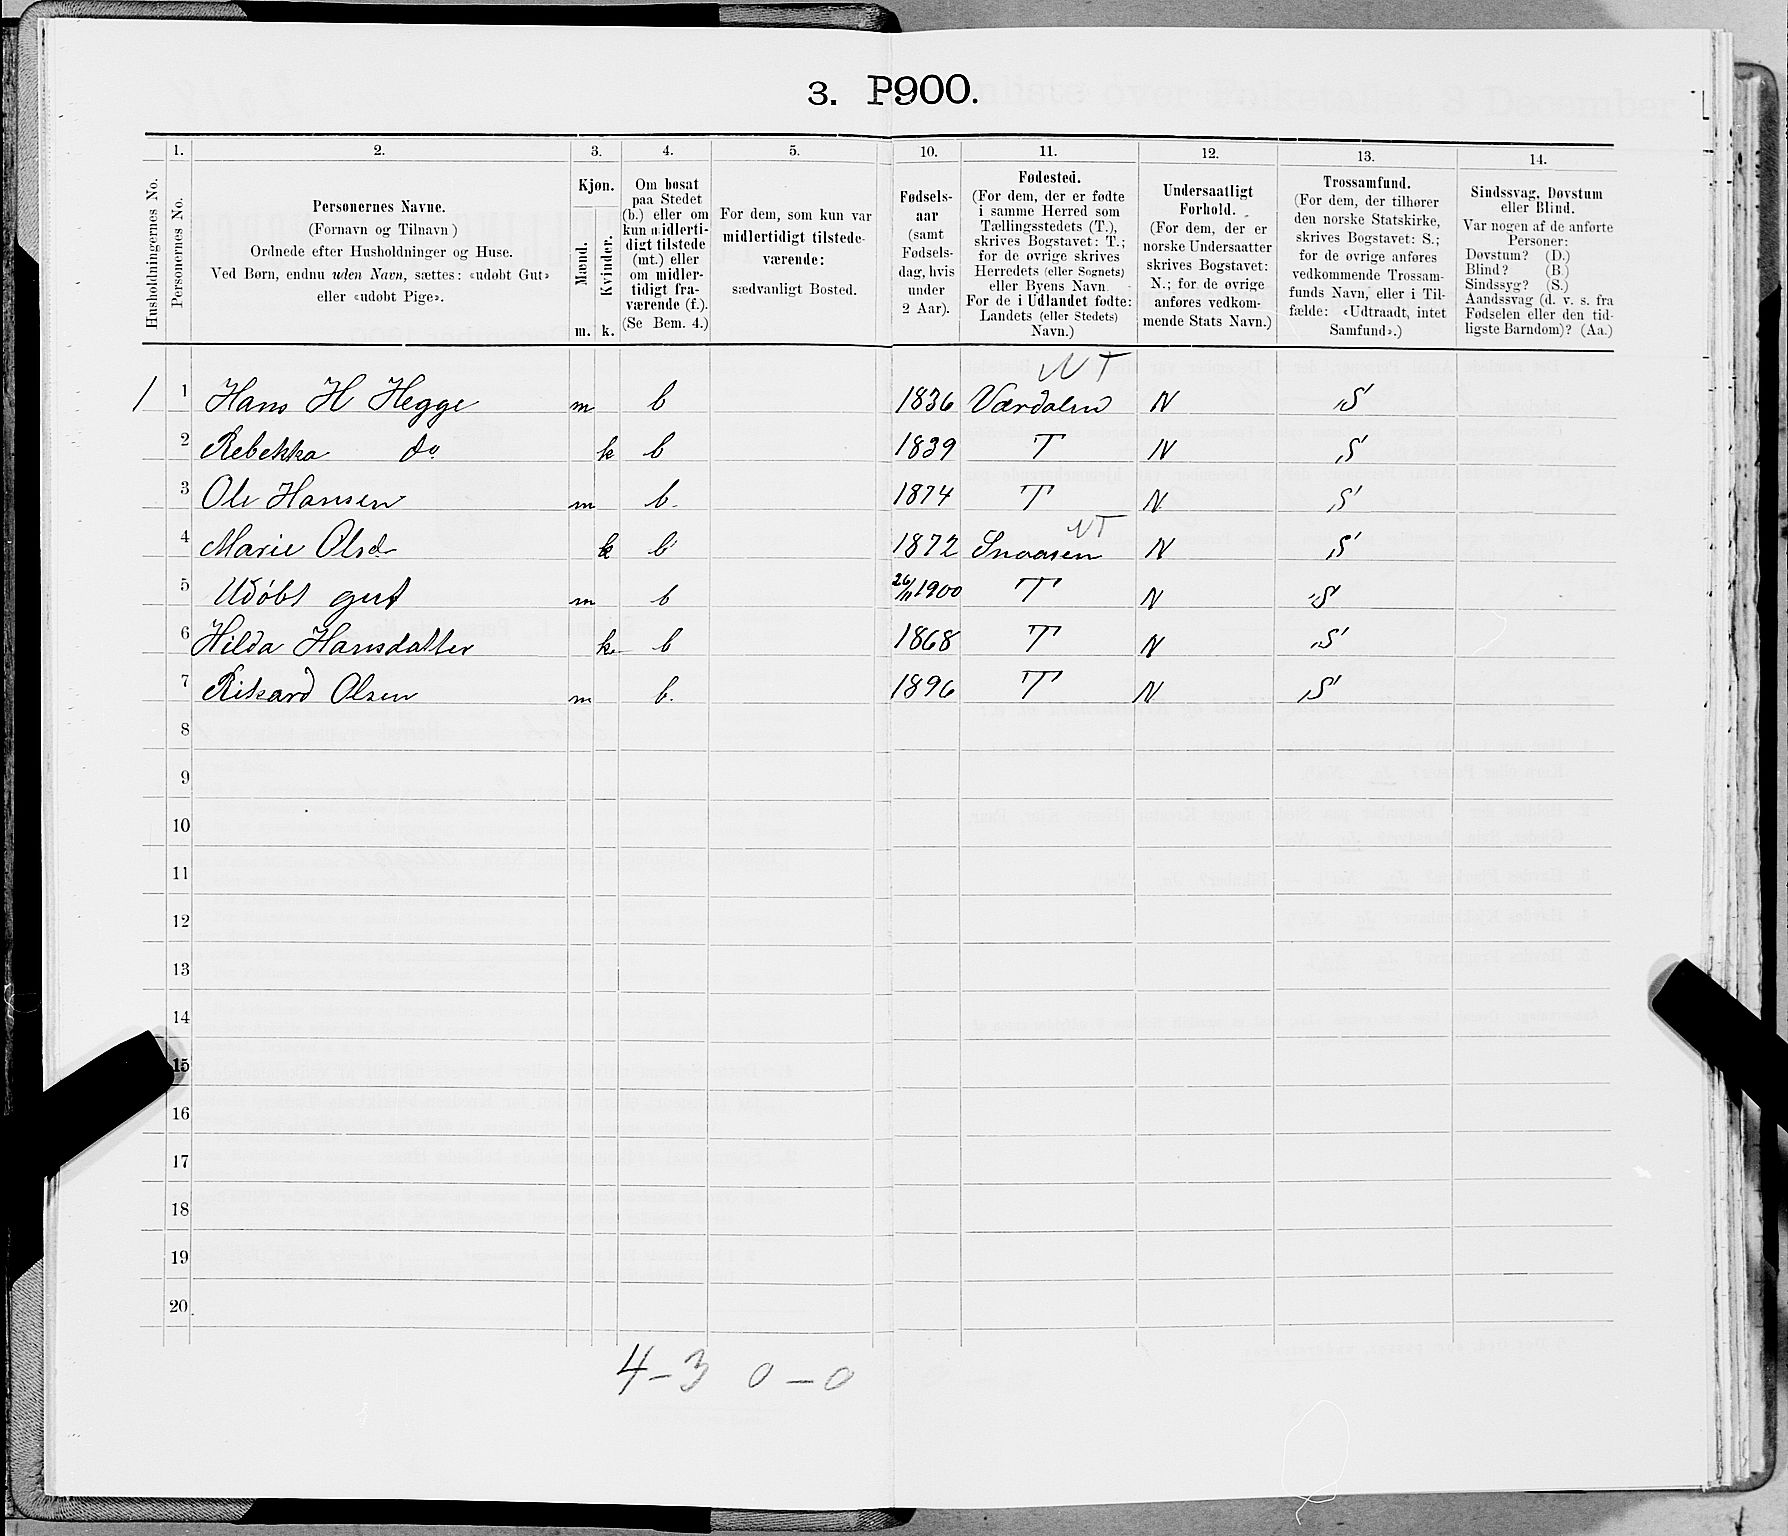 3. P900.
1. 2. 3. 4. 5. 10. 11. 12. 13. 14.
Husholdningernes No.
Personernes No.
Personernes Navne.
(Fornavn og Tilnavn)
Ordnede efter Husholdninger og Huse.
Ved Børn, endnu uden Navn, sættes: «udøbt Gut»
eller «udøbt Pige».
Kjøn.
Mænd.
Kvinder.
m. k.
Om bosat
paa Stedet
(b.) eller om
kun midlerti-
digt tilstede
(mt.) eller
om midler-
tidigt fra-
værende (f.).
(Se Bem. 4.)
For dem, som kun var
midlertidigt tilstede-
værende:
sædvanligt Bosted.
Fødsels-
aar
(samt
Fødsels-
dag, hvis
under
2 Aar).
Fødested.
(For dem, der er fødte
i samme Herred som
Tællingsstedets (T.),
skrives Bogstavet: T.;
for de øvrige skrives
Herredets (eller Sognets)
eller Byens Navn.
For de i Udlandet fødte:
Landets (eller Stedets)
Navn.)
Undersaatligt
Forhold.
(For dem, der er
norske Undersaatter
skrives Bogstavet:
N.; for de øvrige
anføres vedkom-
mende Stats Navn.)
Trossamfund.
(For dem, der tilhører
den norske Statskirke,
skrives Bogstavet: S.;
for de øvrige anføres
vedkommende Trossam-
funds Navn, eller i Til-
fælde: «Udtraadt, intet
Samfund».)
Sindssvag, Døvstum
eller Blind.
Var nogen af de anførte
Personer:
Døvstum? (D.)
Blind? (B.)
Sindssyg? (S.)
Aandssvag (d. v. s. fra
Fødselen eller den tid-
ligste Barndom)? (Aa.)
NT
1 1 Hans H Hegge m b 1836 Værdalen N S
2 Rebekka do k b 1839 T N S
3 Ole Hansen m b. 1874 T N S
NT
4 Marie Olsd k b 1872 Snaasen N S
5 Udøbt gut m b 26/11 1900 T N S
6 Hilda Hansdatter k b 1868 T N S
7 Rikard Olsen m b. 1896 T N S
8
9
10
11
12
13
14
15
16
17
18
19
20
4-3 0-0